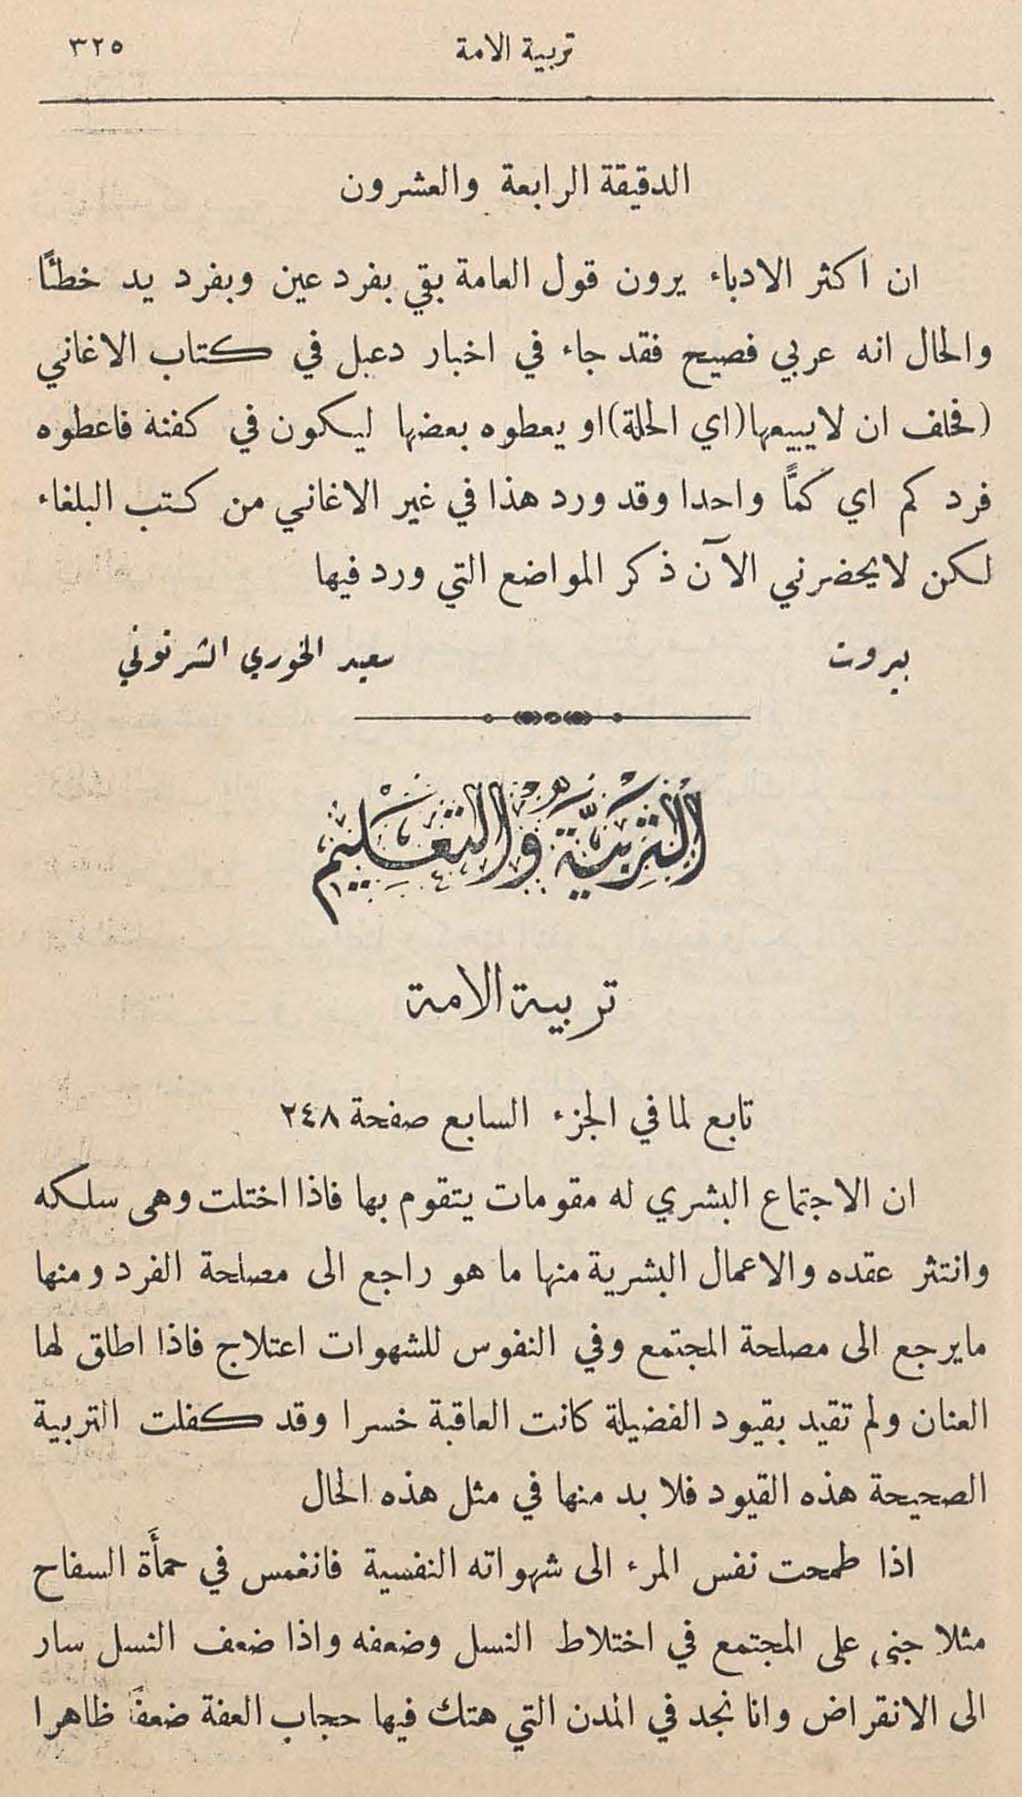 تربية الامة ٣٢٥
الدقيقة الرابعة والعشرون
ان اكثر الادباء يرون قول العامة بقي بفرد عين وبفرد يد خطئًا
والحال انه عربي فصيح فقد جاء في اخبار دعبل في كتاب الاغاني
(فحلف ان لايبيعها(اي الحلة)او يعطوه بعضها ليكون في كفنه فاعطوه
فرد كم اي كمًّا واحدا وقد ورد هذا في غير الاغاني من كتب البلغاء
لكن لايحضرني الآن ذكر المواضع التي ورد فيها
بيروت سعيد الخوري الشرتوني
التربية والتعليم
تربية الامة
تابع لما في الجزء السابع صفحة ٢٤٨
ان الاجتماع البشري له مقومات يتقوم بها فاذا اختلت وهى سلكه
وانتثر عقده والاعمال البشرية منها ما هو راجع الى مصلحة الفرد ومنها
مايرجع الى مصلحة المجتمع وفي النفوس للشهوات اعتلاج فاذا اطلق لها
العنان ولم تقيد بقيود الفضيلة كانت العاقبة خسرا وقد كفلت التربية
الصحيحة هذه القيود فلا بد منها في مثل هذه الحال
اذا طمحت نفس المرء الى شهواته النفسية فانغمس في حمأة السفاح
مثلا جنى على المجتمع في اختلاط النسل وضعفه واذا ضعف النسل سار
الى الانقراض وانا نجد في المدن التي هتك فيها حجاب العفة ضعفا ظاهرا